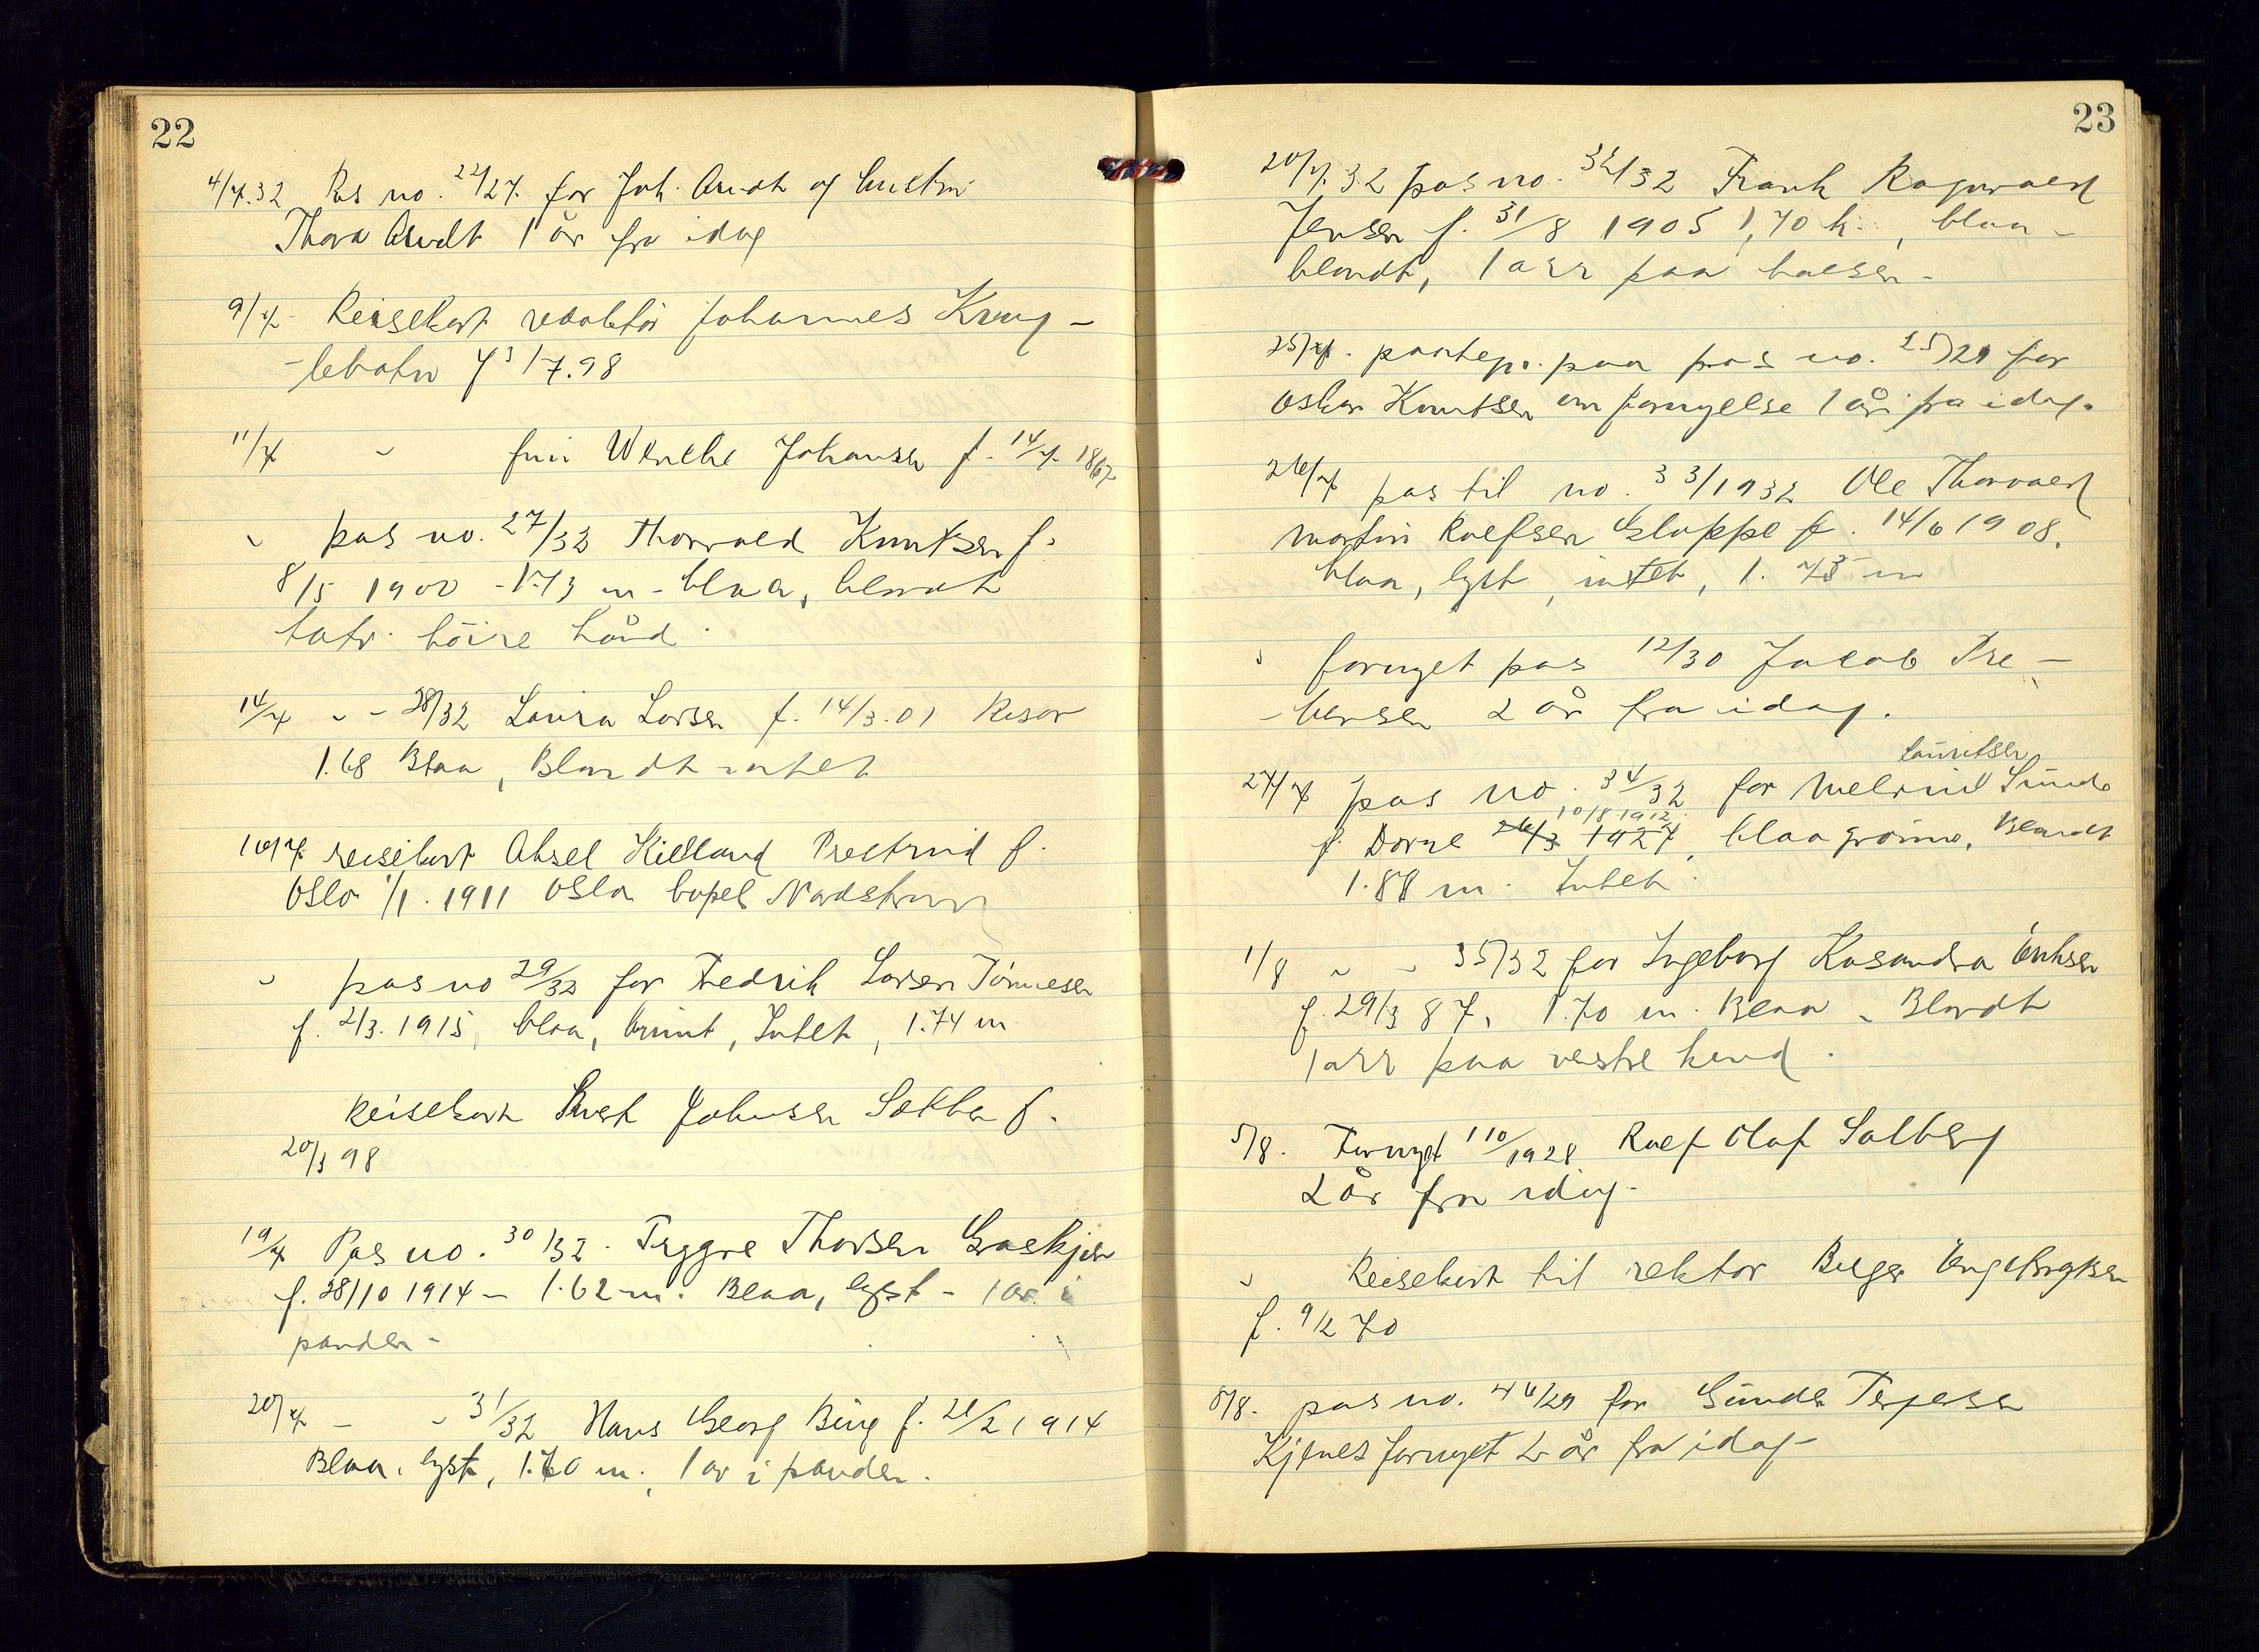 22
4/7.32 Pas no. 22/27. for Joh. Arndt og hustru
Thora Arndt 1 år fra idag
9/7 - Reisekort redaktör Johannes Kreng -
- lebotn f 3/7.98
11/7 " fru Wenche Johansen f. 14/7 1867
" pas no. 27/32 Thorvald Knutsen f.
8/5 1900 - 1.73 m - blaa, blondt
tatv. höire hånd.
14/7 " - 28/32 Laura Larsen f. 14/3.01 Risør
1.68 Blaa, Blondt intet
16/7 reisekort Aksel Kielland Prestrud f.
Oslo 1/1. 1911 Oslo bopel Nordstrand
" pas no 29/32 for Fredrik Larsen Tönnesen
f. 2/3. 1915, blaa, brunt, Intet, 1.74 m
Reisekort Johnsen f.
20/3 98
19/7 Pas no. 30/32. Tryggve Thorsen Graskjær
f. 28/10 1914 - 1.62 m. Blaa, lyst - 1 ar i
panden -
20/7 - " 31/32 Hans Georg Bing f. 21/2 1914
Blaa, lyst, 1.70 m. 1 ar i panden.
23
20/7.32 pas no. 32/32 Frank Ragnvald
Jensen f. 31/8 1905 1,70 h , blaa -
blondt, 1 arr paa halsen -
25/7. paategn. paa pas no. 25/29 for
Oskar Knutsen om fornyelse 1 år fra idag.
26/7 pas til no. 33/1932 Ole Thorvald
Martin Roefsen Gloppe f. 14/6 1908.
blaa, lyst, intet, 1.75 m
" fornyet pas 12/30 Jacob Pre -
- bensen 2 år fra idag.
Lauritsen
27/7 pas no. 34/32 for Melvind Sunde
10/8 1912
f. Borne 26/3 1927, blaagrönne, Blondt
1.88 m. Intet
1/8 " - 35/32 for Ingeborg Kasandra Eriksen
f. 29/3 87, 1.70 m. Blaa - Blondt
1 arr paa venstre haand.
5/8. Fornyet 110/1928 Rolf Olaf Solberg
2 år fra idag -
" Reisekort til rektor Birger Engebrigtsen
f. 9/2 70
8/8. pas no. 46/29 for Gunder Terjesen
Kjenes fornyet 2 år fra idag -